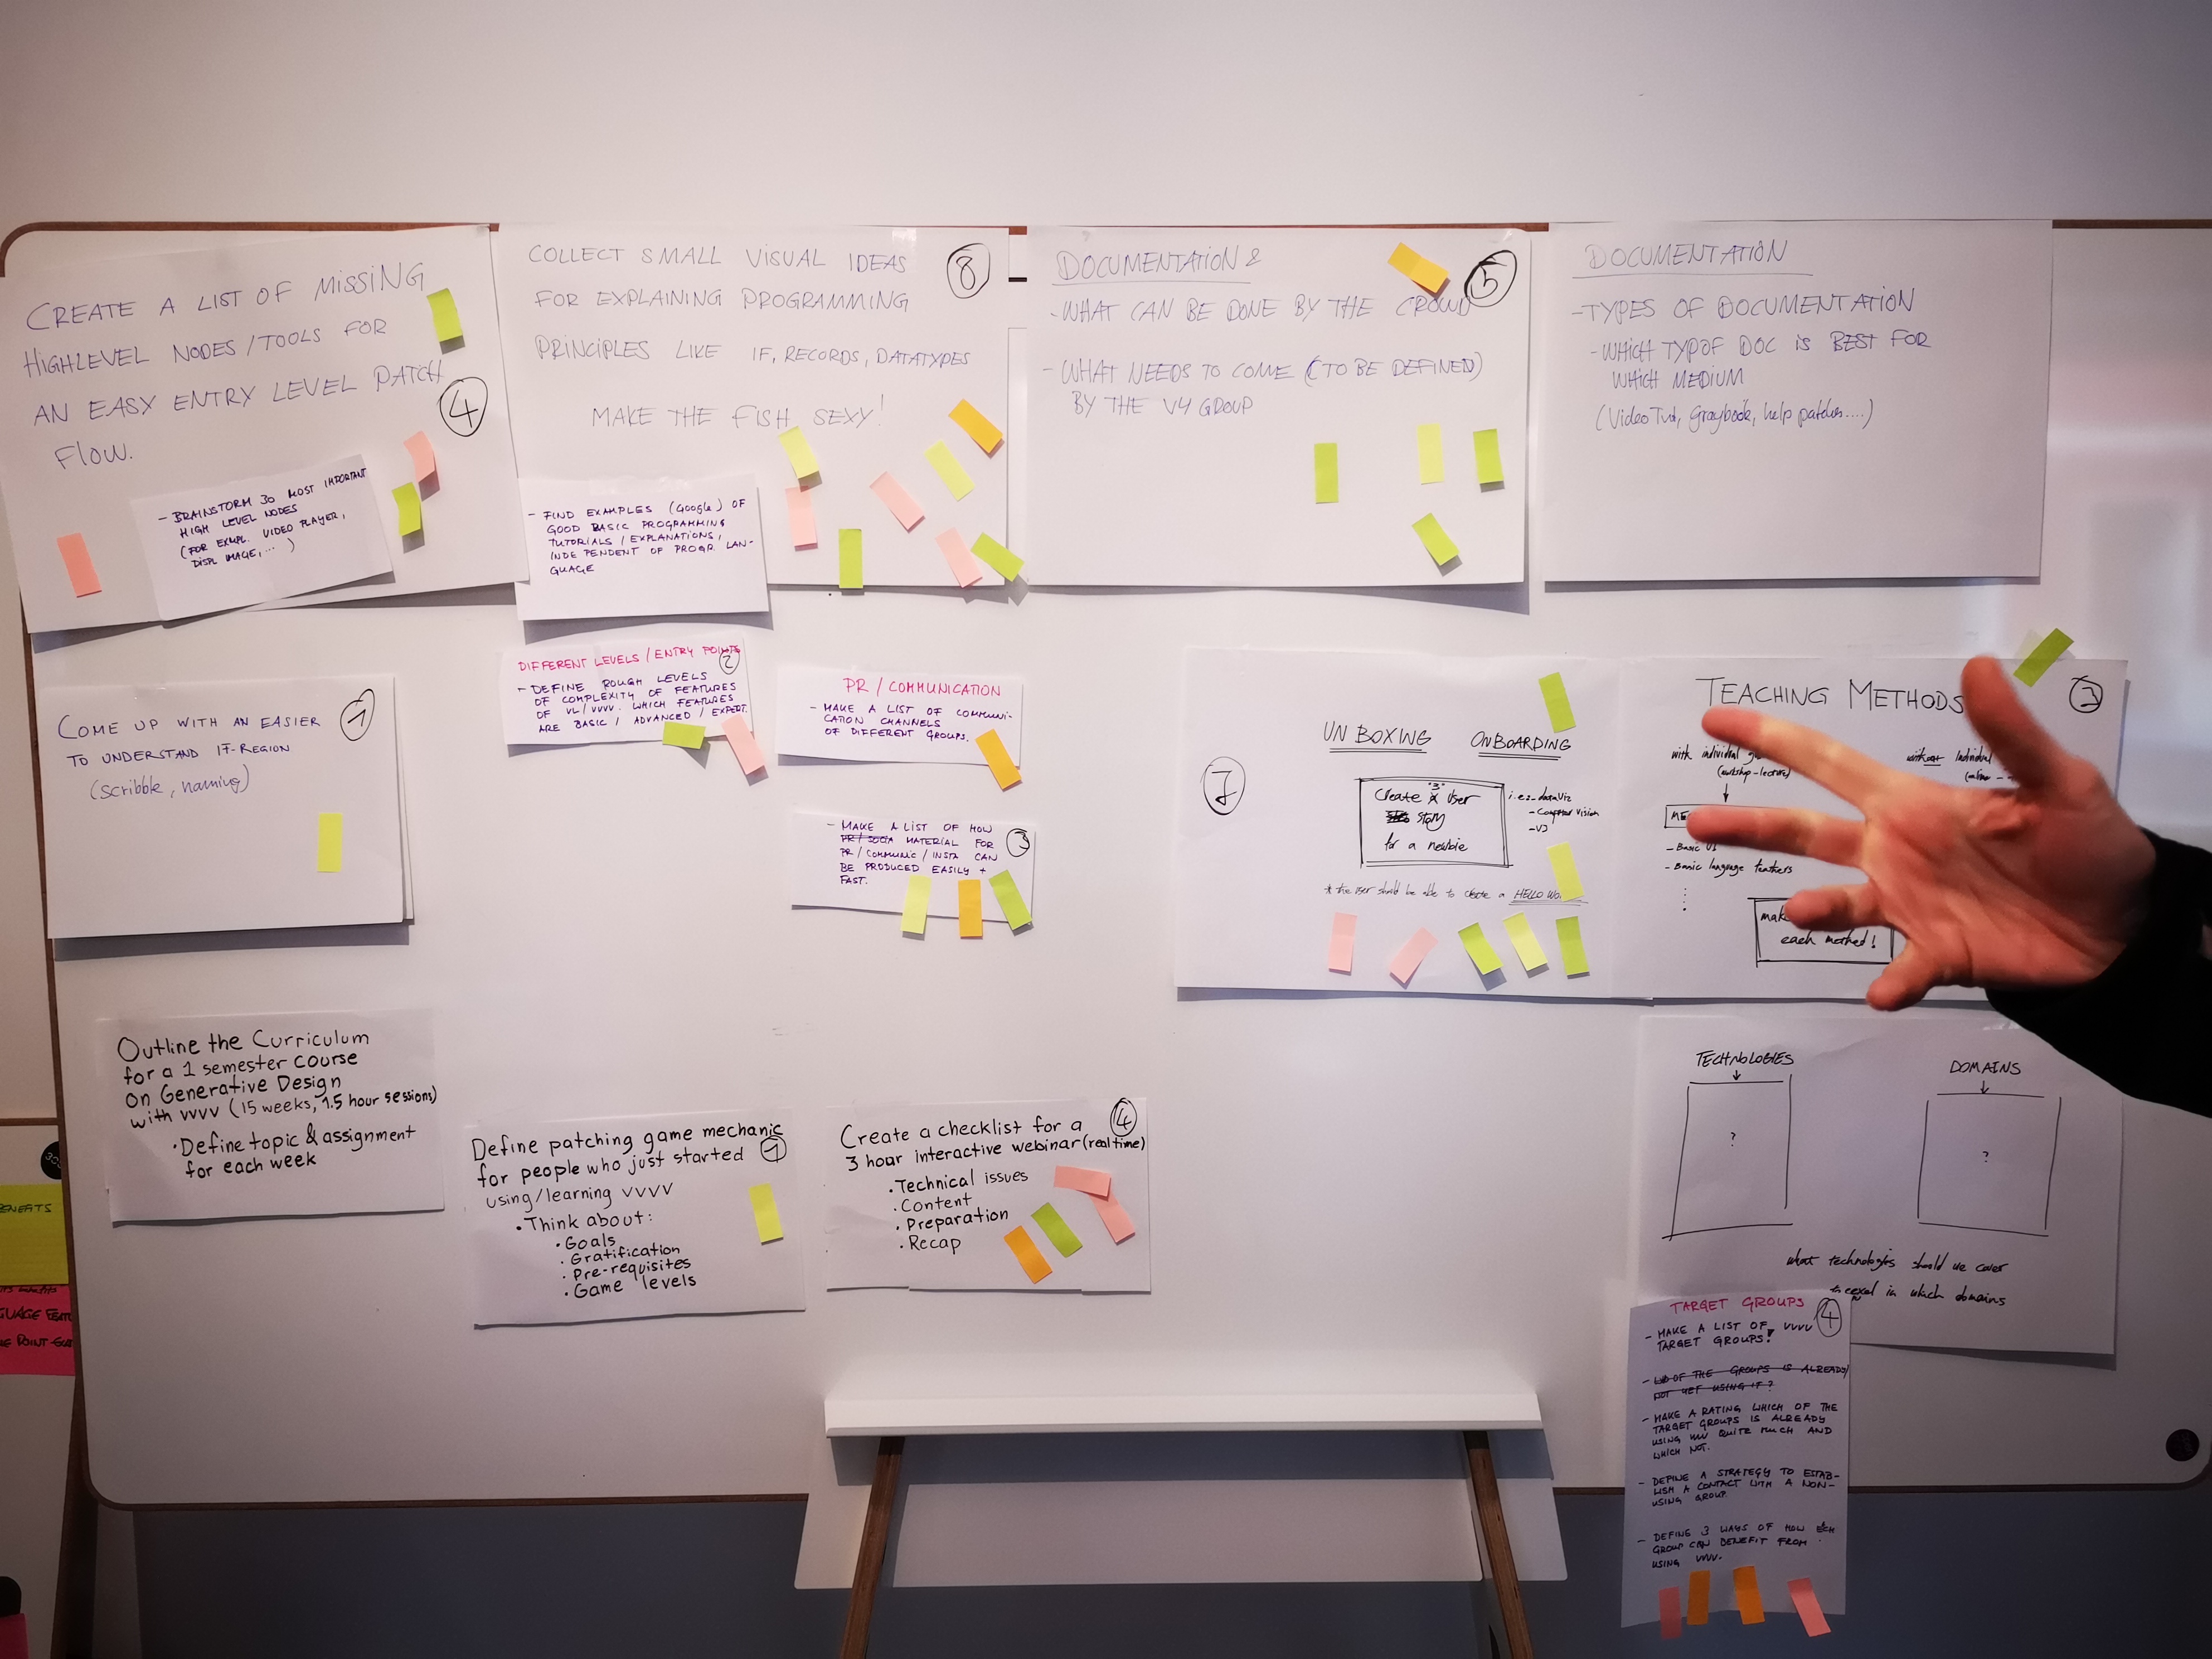 CREATE A LIST OF MISSING
HIGHLEVEL NODES/TOOLS FOR
AN EASY ENTRY LEVEL PATCH
FLOW.
4
- BRAINSTORM 30 MOST IMPORTANT
HIGH LEVEL NODES
(FOR EXMPL. VIDEO PLAYER,
DISPL IMAGE, ... )
COLLECT SMALL VISUAL IDEAS
FOR EXPLAINING PROGRAMMING
PRINCIPLES LIKE IF, RECORDS, DATATYPES
MAKE THE FISH SEXY!
8
- FIND EXAMPLES (Google) OF
GOOD BASIC PROGRAMMING
TUTORIALS / EXPLANATIONS,
INDEPENDENT OF PROGR. LAN-
GUAGE
DOCUMENTATION 2
5
- WHAT CAN BE DONE BY THE CROWD
- WHAT NEEDS TO COME (TO BE DEFINED)
BY THE V4 GROUP
DOCUMENTATION
- TYPES OF DOCUMENTATION
- WHICH TYP OF DOC IS BEST FOR
WHICH MEDIUM
(VideoTut, Graybook, help patches....)
COME UP WITH AN EASIER
TO UNDERSTAND IF-REGION
(scribble, naming)
1
DIFFERENT LEVELS / ENTRY POINTS
2
- DEFINE ROUGH LEVELS
OF COMPLEXITY OF FEATURES
OF VL/VVVV. WHICH FEATURES
ARE BASIC / ADVANCED / EXPERT.
PR / COMMUNICATION
- MAKE A LIST OF COMMUNI-
CATION CHANNELS
OF DIFFERENT GROUPS.
- MAKE A LIST OF HOW
PR / SOCIA MATERIAL FOR
PR / COMMUNIC / INSTA CAN
BE PRODUCED EASILY +
FAST.
3
7
UNBOXING ONBOARDING
Create "3" User
story
for a newbie
i.e. - dataViz
- Computer Vision
- VJ
* the user should be able to create a HELLO
TEACHING METHODS
3
with individual
(workshop-lecture)
without Individual
(online
- Basic
- Basic language features
each method!
Outline the Curriculum
for a 1 semester course
on Generative Design
with vvvv (15 weeks, 1.5 hour sessions)
• Define topic & assignment
for each week
Define patching game mechanic
for people who just started
using/learning vvvv
1
• Think about:
• Goals
• Gratification
• Pre-requisites
• Game levels
Create a checklist for a
3 hour interactive webinar (real time)
4
• Technical issues
• Content
• Preparation
• Recap
TECHNOLOGIES
?
DOMAINS
?
what technologies should we cover
in which domains
TARGET GROUPS
4
- MAKE A LIST OF VVVV
TARGET GROUPS!
OF THE GROUPS IS ALREADY/
NOT YET USING IT?
- MAKE A RATING WHICH OF THE
TARGET GROUPS IS ALREADY
USING VVVV QUITE MUCH AND
WHICH NOT.
- DEFINE A STRATEGY TO ESTAB-
LISH A CONTACT WITH A NON-
USING GROUP.
- DEFINE 3 WAYS OF HOW ECH
GROUP CAN BENEFIT FROM
USING VVVV.